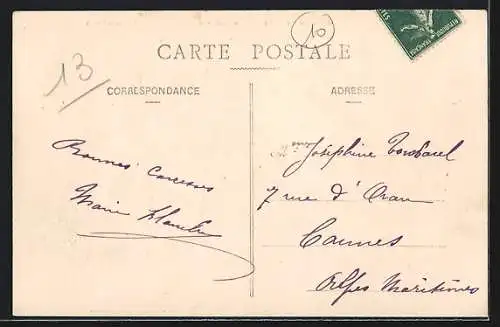 10
CARTE POSTALE
13
CORRESPONDANCE
ADRESSE
Bonnes Caresses
Marie
Joséphine
7 rue d'Oran
Cannes
Alpes Maritimes